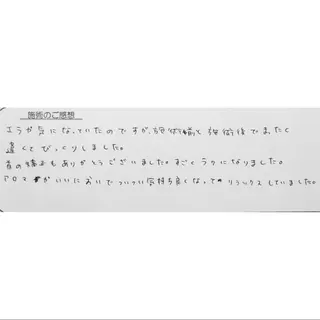 施術のご感想
エラが気になっていたのですが、施術前と施術後でまったく
違くてびっくりしました。
首の痛みもありがとうございました。すごくラクになりました。
アロマがいいにおいでついつい気持ち良くなってリラックスしていました。